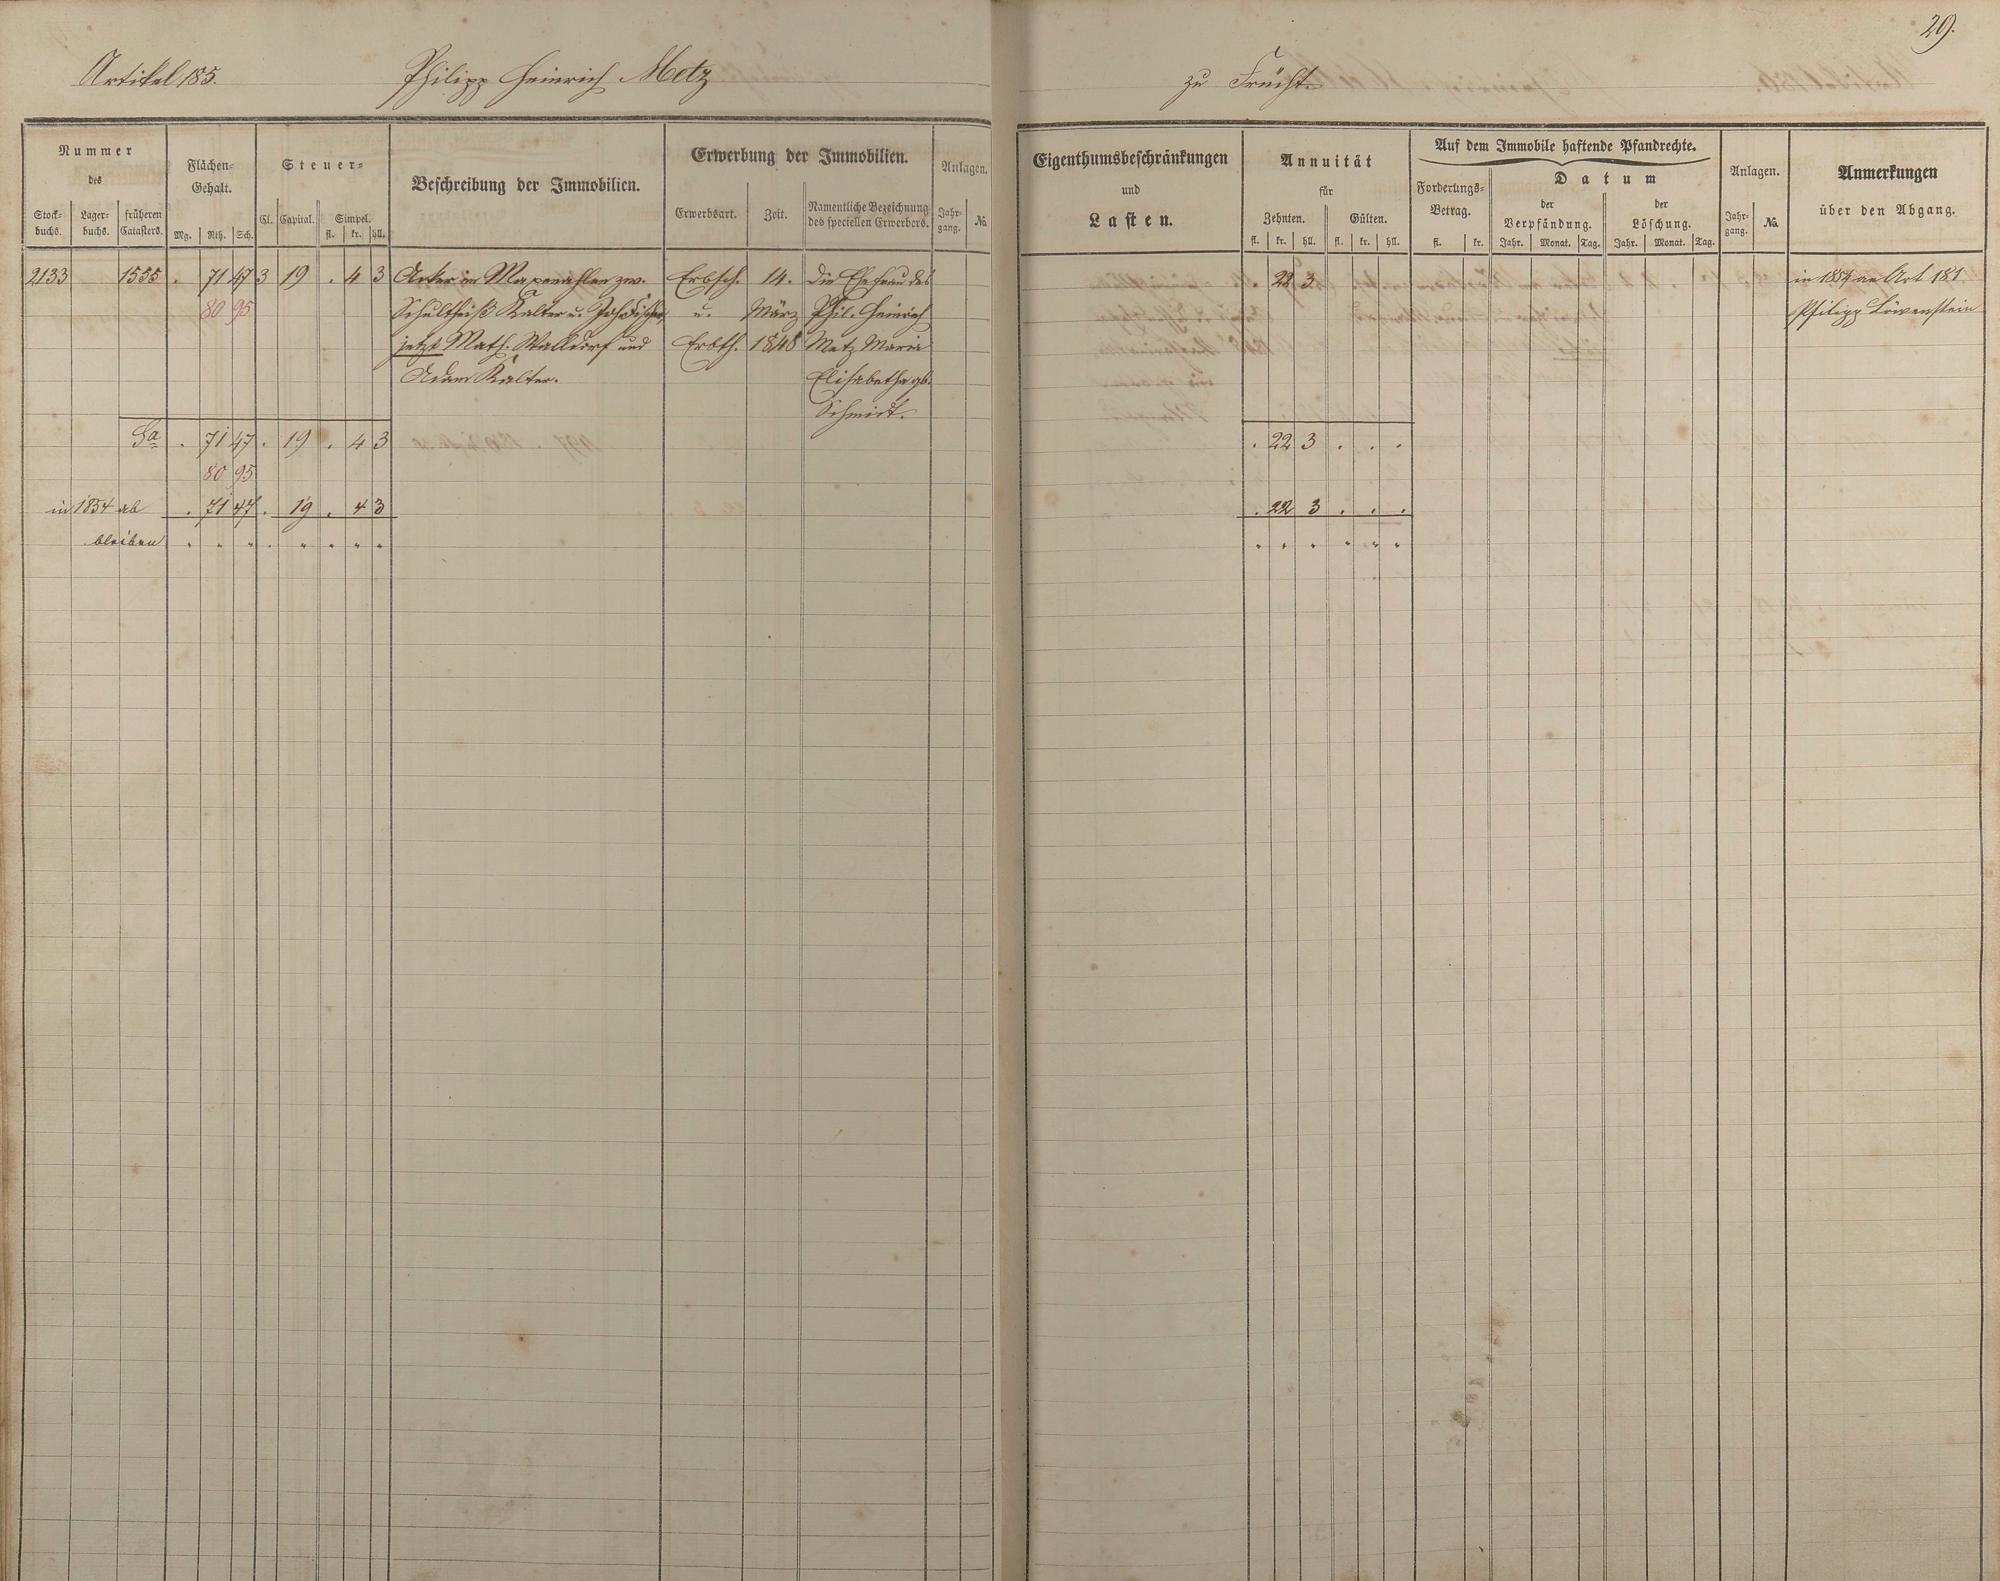 29.
Artikel 185. Philipp Heinrich Metz zu Frücht
Nummer des
Stock-buchs. Lager-buchs. früheren Catasters.
Flächen-Gehalt.
Mg. Rth. Sch.
Steuer-
Cl. Capital. Simpel.
fl. kr. hll.
Beschreibung der Immobilien.
Erwerbung der Immobilien.
Erwerbsart. Zeit. Namentliche Bezeichnung des speciellen Erwerbers.
Anlagen.
Jahr-gang. No
Eigenthumsbeschränkungen
und
Lasten.
Annuität
für
Zehnten. Gülten.
fl. kr. hll. fl. kr. hll.
Auf dem Immobile haftende Pfandrechte.
Forderungs-Betrag.
fl. kr.
Datum
der Verpfändung. der Löschung.
Jahr. Monat. Tag. Jahr. Monat. Tag.
Anlagen.
Jahr-gang. No
Anmerkungen
über den Abgang.
2133 1555 . 71 47 3 19 . 4 3 Acker im zw. Erbsch. 14. Die Ehefrau des 22 3 in 1854 an Art 181
80 95 Schultheiß Kalter u. Joh. Fischer, u. März Phil. Heinrich Philipp Löwenstein
jetzt Math. Walldorf und Erbth. 1848 Metz Maria
Adam Kalter. Elisabetha gb.
Schmidt.
Sa . 71 47 . 19 . 4 3 . 22 3 . . .
80 95
in 1854 ab . 71 47 . 19 . 4 3 . 22 3 . . .
bleiben " " " " " " " " " " " " " "